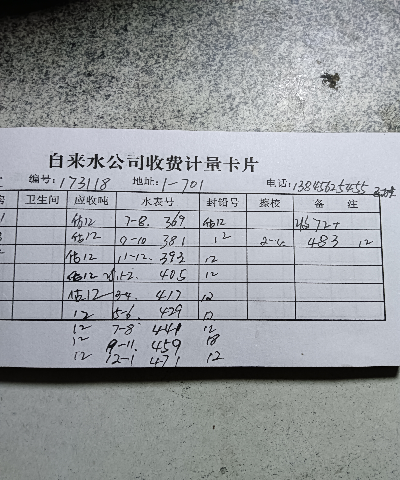 自来水公司收费计量卡片
编号:173118 地址:1-701 电话:13845625455
卫生间 应收吨 水表号 封铅号 擦校 备 注
估12 7-8. 369 估12 72+
估12 9-10 381 12 2-4 483 12
估12 11-12. 393 12
估12 1-2 405 12
估12 3-4. 417 12
12 5-6. 429 12
12 7-8 441 12
12 9-11. 459 18
12 12-1 471 12